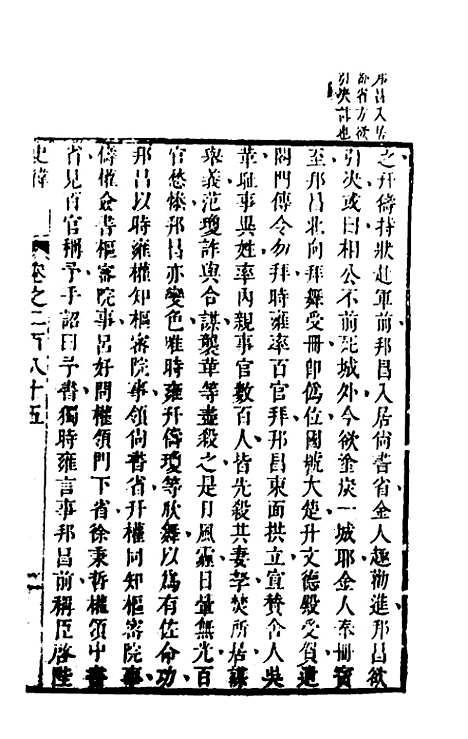 邦昌入居
尚省方欲
引决計也
之幵儔持狀赴軍前邦昌入居尚書省金人趣勸進邦昌欲
引决或曰相公不前死城外今欲塗炭一城耶金人奉冊寳
至邦昌北向拜舞受冊卽僞位國號大楚升文德殿受賀遣
閤門傳令勿拜時雍率百官拜邦昌東面拱立宣贊舍人吳
革恥事異姓率內親事官數百人皆先殺其妻孥焚所居謀
舉義范瓊詐與合謀襲革等盡殺之是日風霾日暈無光百
官慘怛邦昌亦變色唯時雍幵儔瓊等欣舞以爲有佐命功
邦昌以時雍權知樞密院事領尚書省幵權同知樞密院事
儔權僉書樞密院事呂好問權領門下省徐秉哲權領中書
省見百官稱予手詔曰手書獨時雍言事邦昌前稱臣啓陛
史緯
卷之二百八十五